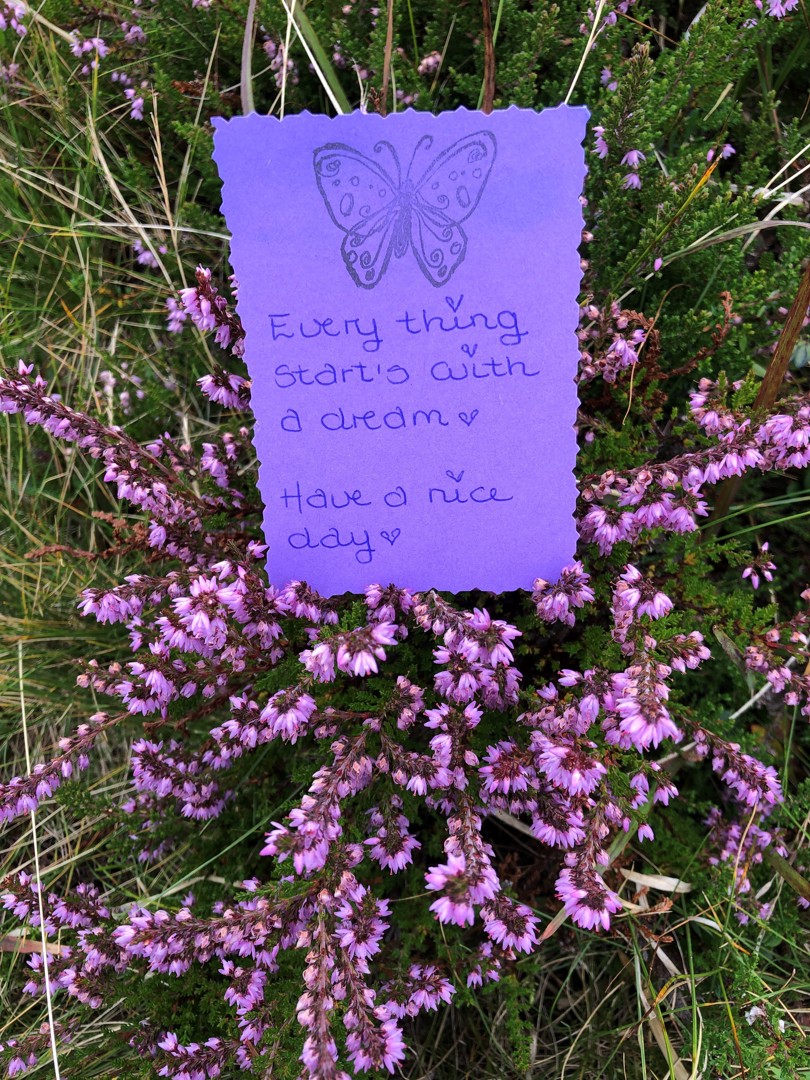 Every thing
start's with
a dream ♥
Have a nice
day ♥